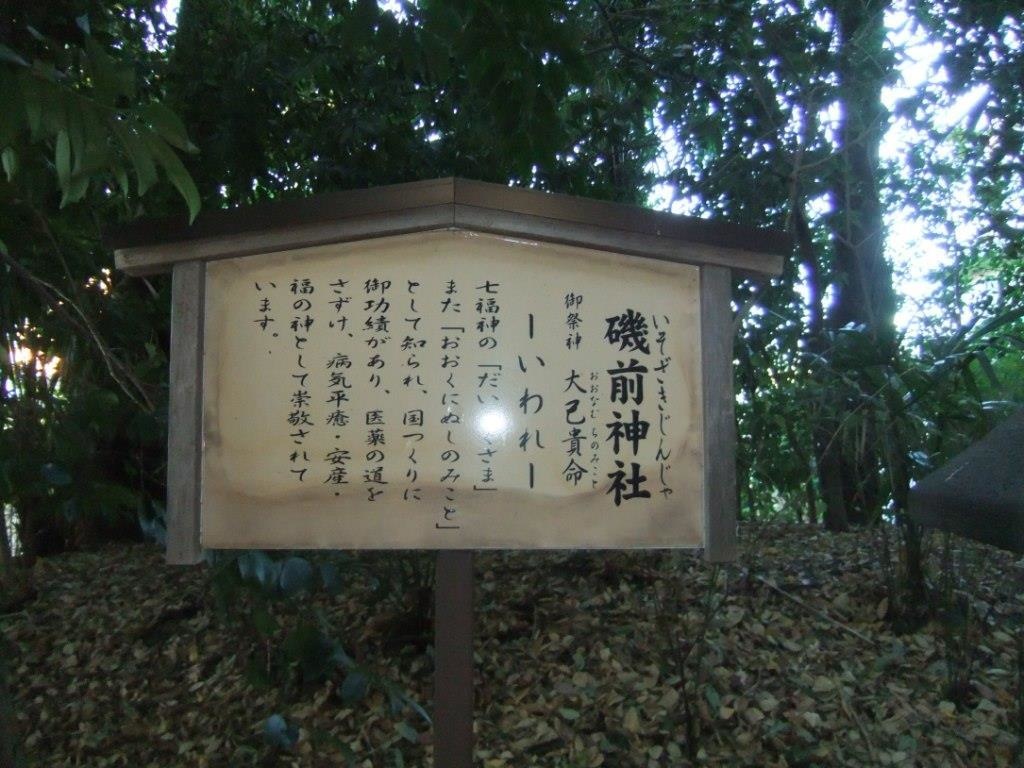 いそざきじんじゃ
磯前神社
おおなむちのみこと
御祭神 大己貴命
ーいわれー
七福神の「だい さま」
また「おおくにぬしのみこと」
として知られ、国つくりに
御功績があり、医薬の道を
さずけ、病気平癒・安産・
福の神として崇敬されて
います。